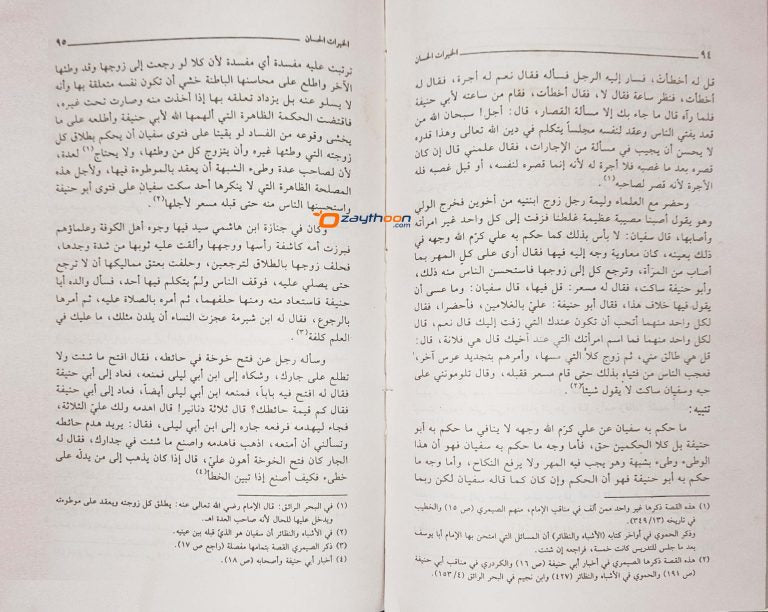 ٩٤ الخيرات الحسان
قل له أخطأتَ، فسار إليه الرجل فسأله فقال نعم له أجرة، فقال له
أخطأت، فنظر ساعة فقال لا، فقال أخطأت، فقام من ساعته لأبي حنيفة
فلما رآه قال ما جاء بك إلا مسألة القصار، قال: أجل! سبحان الله من
قعد يفتي الناس وعقد لنفسه مجلساً يتكلم في دين الله تعالى وهذا قدره
لا يحسن أن يجيب في مسألة من الإجارات، فقال علمني قال إن كان
قصره بعد ما غصبه فلا أجرة له لأنه إنما قصره لنفسه، أو قبل غصبه فله
الأجرة لأنه قصر لصاحبه(١).
وحضر مع العلماء وليمة رجل زوج ابنتيه من أخوين فخرج الولي
وهو يقول أصبنا مصيبة عظيمة غلطنا فزفت إلى كل واحد غير امرأته
وأصابها، قال سفيان: لا بأس بذلك كما حكم به علي كرّم الله وجهه في
ذلك بعينه، كان معاوية وجه إليه فيها فقال أرى على كل المهر بما
أصاب من المرأة، وترجع كل إلى زوجها فاستحسن الناس منه ذلك،
وأبو حنيفة ساكت، فقال له مسعر: قل فيها، قال سفيان: وما عسى أن
يقول فيها خلاف هذا، فقال أبو حنيفة: عليّ بالغلامين، فأحضرا، فقال
لكل واحد منهما أتحب أن تكون عندك التي زفت إليك قال نعم، قال
لكل واحد منهما فما اسم امرأتك التي عند أخيك قال هي فلانة، قال:
قل هي طالق مني، ثم زوج كلاً التي مسها، وأمرهم بتجديد عرس آخر،
فعجب الناس من فتياه بذلك حتى قام مسعر فقبله، وقال تلومونني على
حبه وسفيان ساكت لا يقول شيئاً(٢).
تنبيه:
ما حكم به سفيان عن علي كرّم الله وجهه لا ينافي ما حكم به أبو
حنيفة بل كلا الحكمين حق، فأما وجه ما حكم به سفيان فهو أن هذا
الوطىء وطىء بشبهة وهو يجب فيه المهر ولا يرفع النكاح، وأما وجه ما
حكم به أبو حنيفة فهو أن الحكم وإن كان كما قاله سفيان لكن ربما
(١) هذه القصة ذكرها غير واحد ممن ألف في مناقب الإمام، منهم الصيمري (ص ١٥) والخطيب
في تاريخه (٣٤٩/١٣).
وذكر الحموي في أواخر كتابه (الأشباه والنظائر) أن المسائل التي امتحن بها الإمام أبا يوسف
بعد ما جلس للتدريس كانت خمسة، فراجعه إن شئت.
(٢) هذه القصة ذكرها الصيمري في أخبار أبي حنيفة (ص ١٦) والكردري في مناقب أبي حنيفة
(ص ١٩١) والحموي في الأشباه والنظائر (٤٢٧) وابن نجيم في البحر الرائق (٤/ ١٥٣).
الخيرات الحسان ٩٥
ترتبت عليه مفسدة أي مفسدة لأن كلا لو رجعت إلى زوجها وقد وطئها
الآخر واطلع على محاسنها الباطنة خشي أن تكون نفسه متعلقة بها وأنه
لا يسلو عنه بل يزداد تعلقه بها إذا أخذت منه وصارت تحت غيره،
فاقتضت الحكمة الظاهرة التي ألهمها الله لأبي حنيفة وأطلعه على ما
يخشى وقوعه من الفساد لو بقينا على فتوى سفيان أن يحكم بطلاق كل
زوجته التي وطئها غيره وأن يتزوج كل من وطئها، ولا يحتاج(١) لعدة،
لأن لصاحب عدة وطىء الشبهة أن يعقد بالموطوءة فيها، ولأجل هذه
المصلحة الظاهرة التي لا ينكرها أحد سكت سفيان على فتوى أبو حنيفة
واستحسنها الناس منه حتى قبله مسعر لأجلها(٢).
Ozaythoon.com
وكان في جنازة ابن هاشمي سيد فيها وجوه أهل الكوفة وعلماؤهم
فبرزت أمه كاشفة رأسها ووجهها وألقت عليه ثوبها من شدة وجدها،
فحلف زوجها بالطلاق لترجعين، وحلفت بعتق مماليكها أن لا ترجع
حتى يصلى عليه، فوقف الناس ولمْ يتكلم فيها أحد، فسأل والده أبا
حنيفة فاستعاد منه ومنها حلفهما، ثم أمره بالصلاة عليه، ثم أمرها
بالرجوع، فقال له ابن شبرمة عجزت النساء أن يلدن مثلك، ما عليك في
العلم كلفة(٣).
وسأله رجل عن فتح خوخة في حائطه، فقال افتح ما شئت ولا
تطلع على جارك، وشكاه إلى ابن أبي ليلى فمنعه، فعاد إلى أبي حنيفة
فقال له افتح فيه باباً، فمنعه ابن أبي ليلى أيضاً، فعاد إلى أبي حنيفة
فقال كم قيمة حائطك؟ قال ثلاثة دنانير! قال اهدمه ولك عليّ الثلاثة،
فجاء ليهدمه فرفعه جاره إلى ابن أبي ليلى، فقال: يريد هدم حائطه
وتسألني أن أمنعه، اذهب فاهدمه واصنع ما شئت في جدارك، فقال له
الجار كان فتح الخوخة أهون عليّ، قال إذا كان يذهب إلى من يدلّه على
خطىء فكيف أصنع إذا تبين الخطأ(٤)
(١) في البحر الرائق: قال الإمام رضي الله تعالى عنه: يطلق كل زوجته ويعقد على موطوءته
ويدخل عليها للحال لأنه صاحب العدة اهـ.
(٢) في الأشباه والنظائر أن سفيان هو الذي قبله بين عينيه.
(٣) ذكر الصيمري القصة بتمامها مفصلة (راجع ص ١٧).
(٤) أخبار أبي حنيفة وأصحابه (ص ١٨).